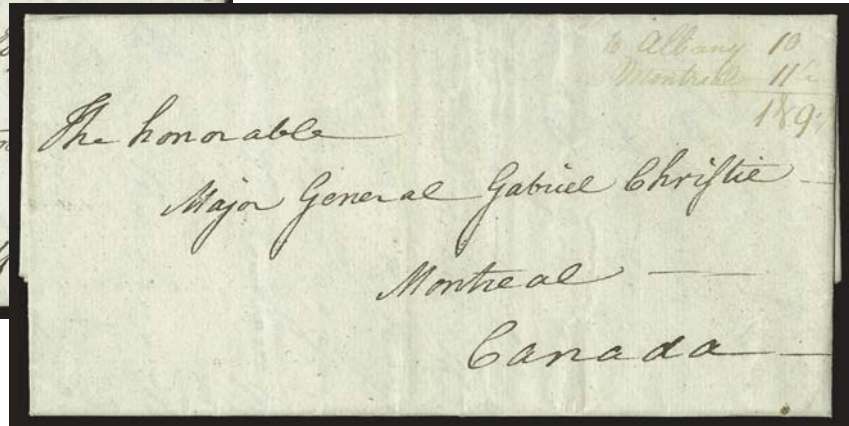 to Albany 10
Montreal 11
The honorable
Major General Gabriel Christie
Montreal
Canada